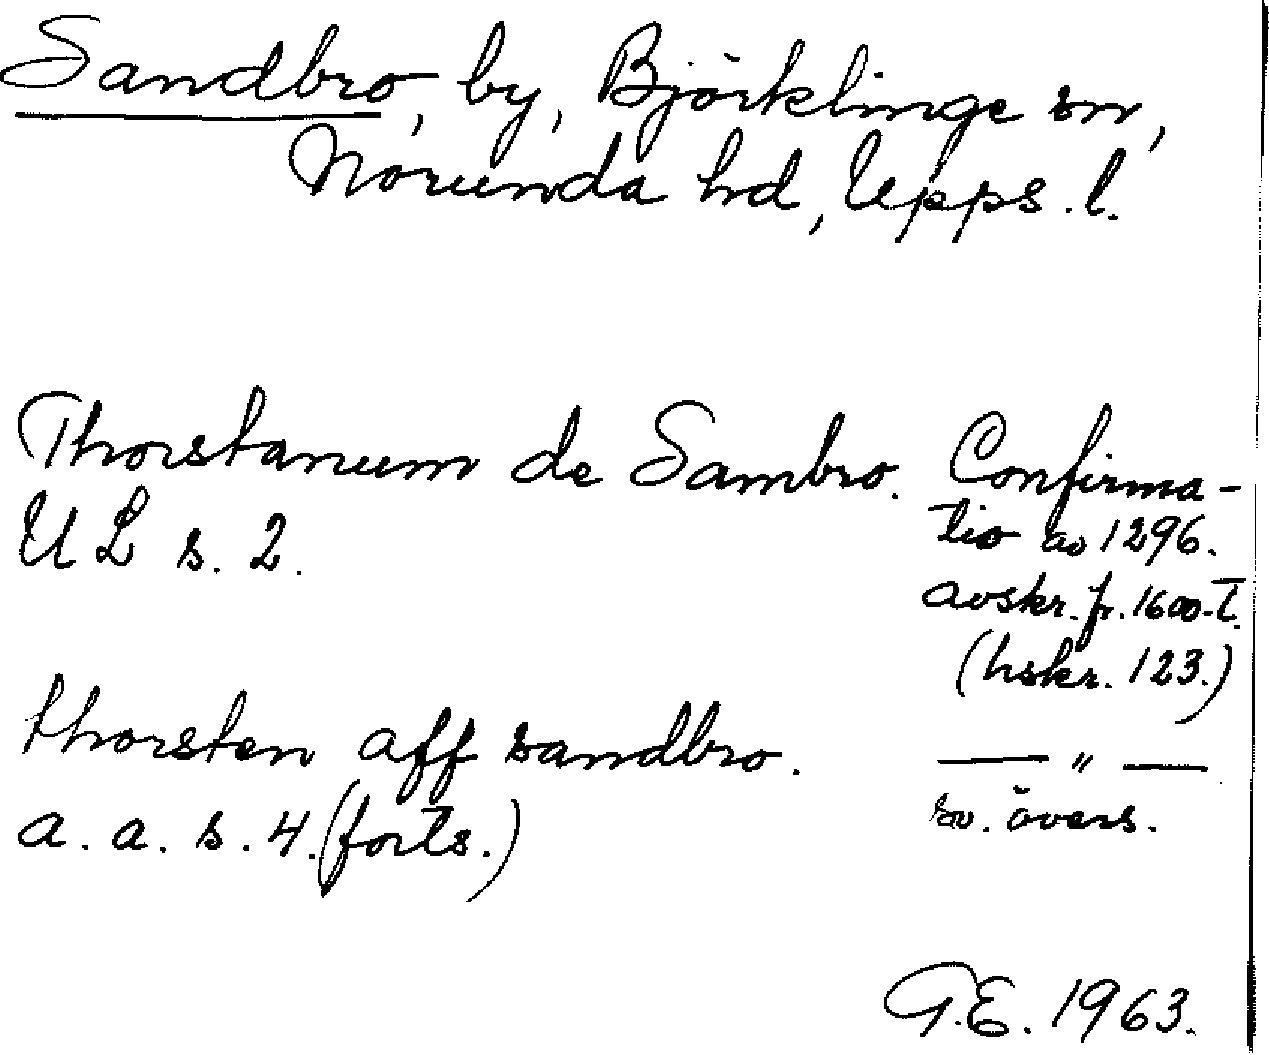 Sandbro, by, Björklinge sn,
Norunda hd, Upps. l.
Thorstanum de Sambro.
UL s. 2.
Confirma-
tio ao 1296.
avskr. fr. 1600-t.
(hskr. 123.)
thorsten aff sandbro.
a. a. s. 4. (forts.)
— " —
sv. övers.
G.E. 1963.